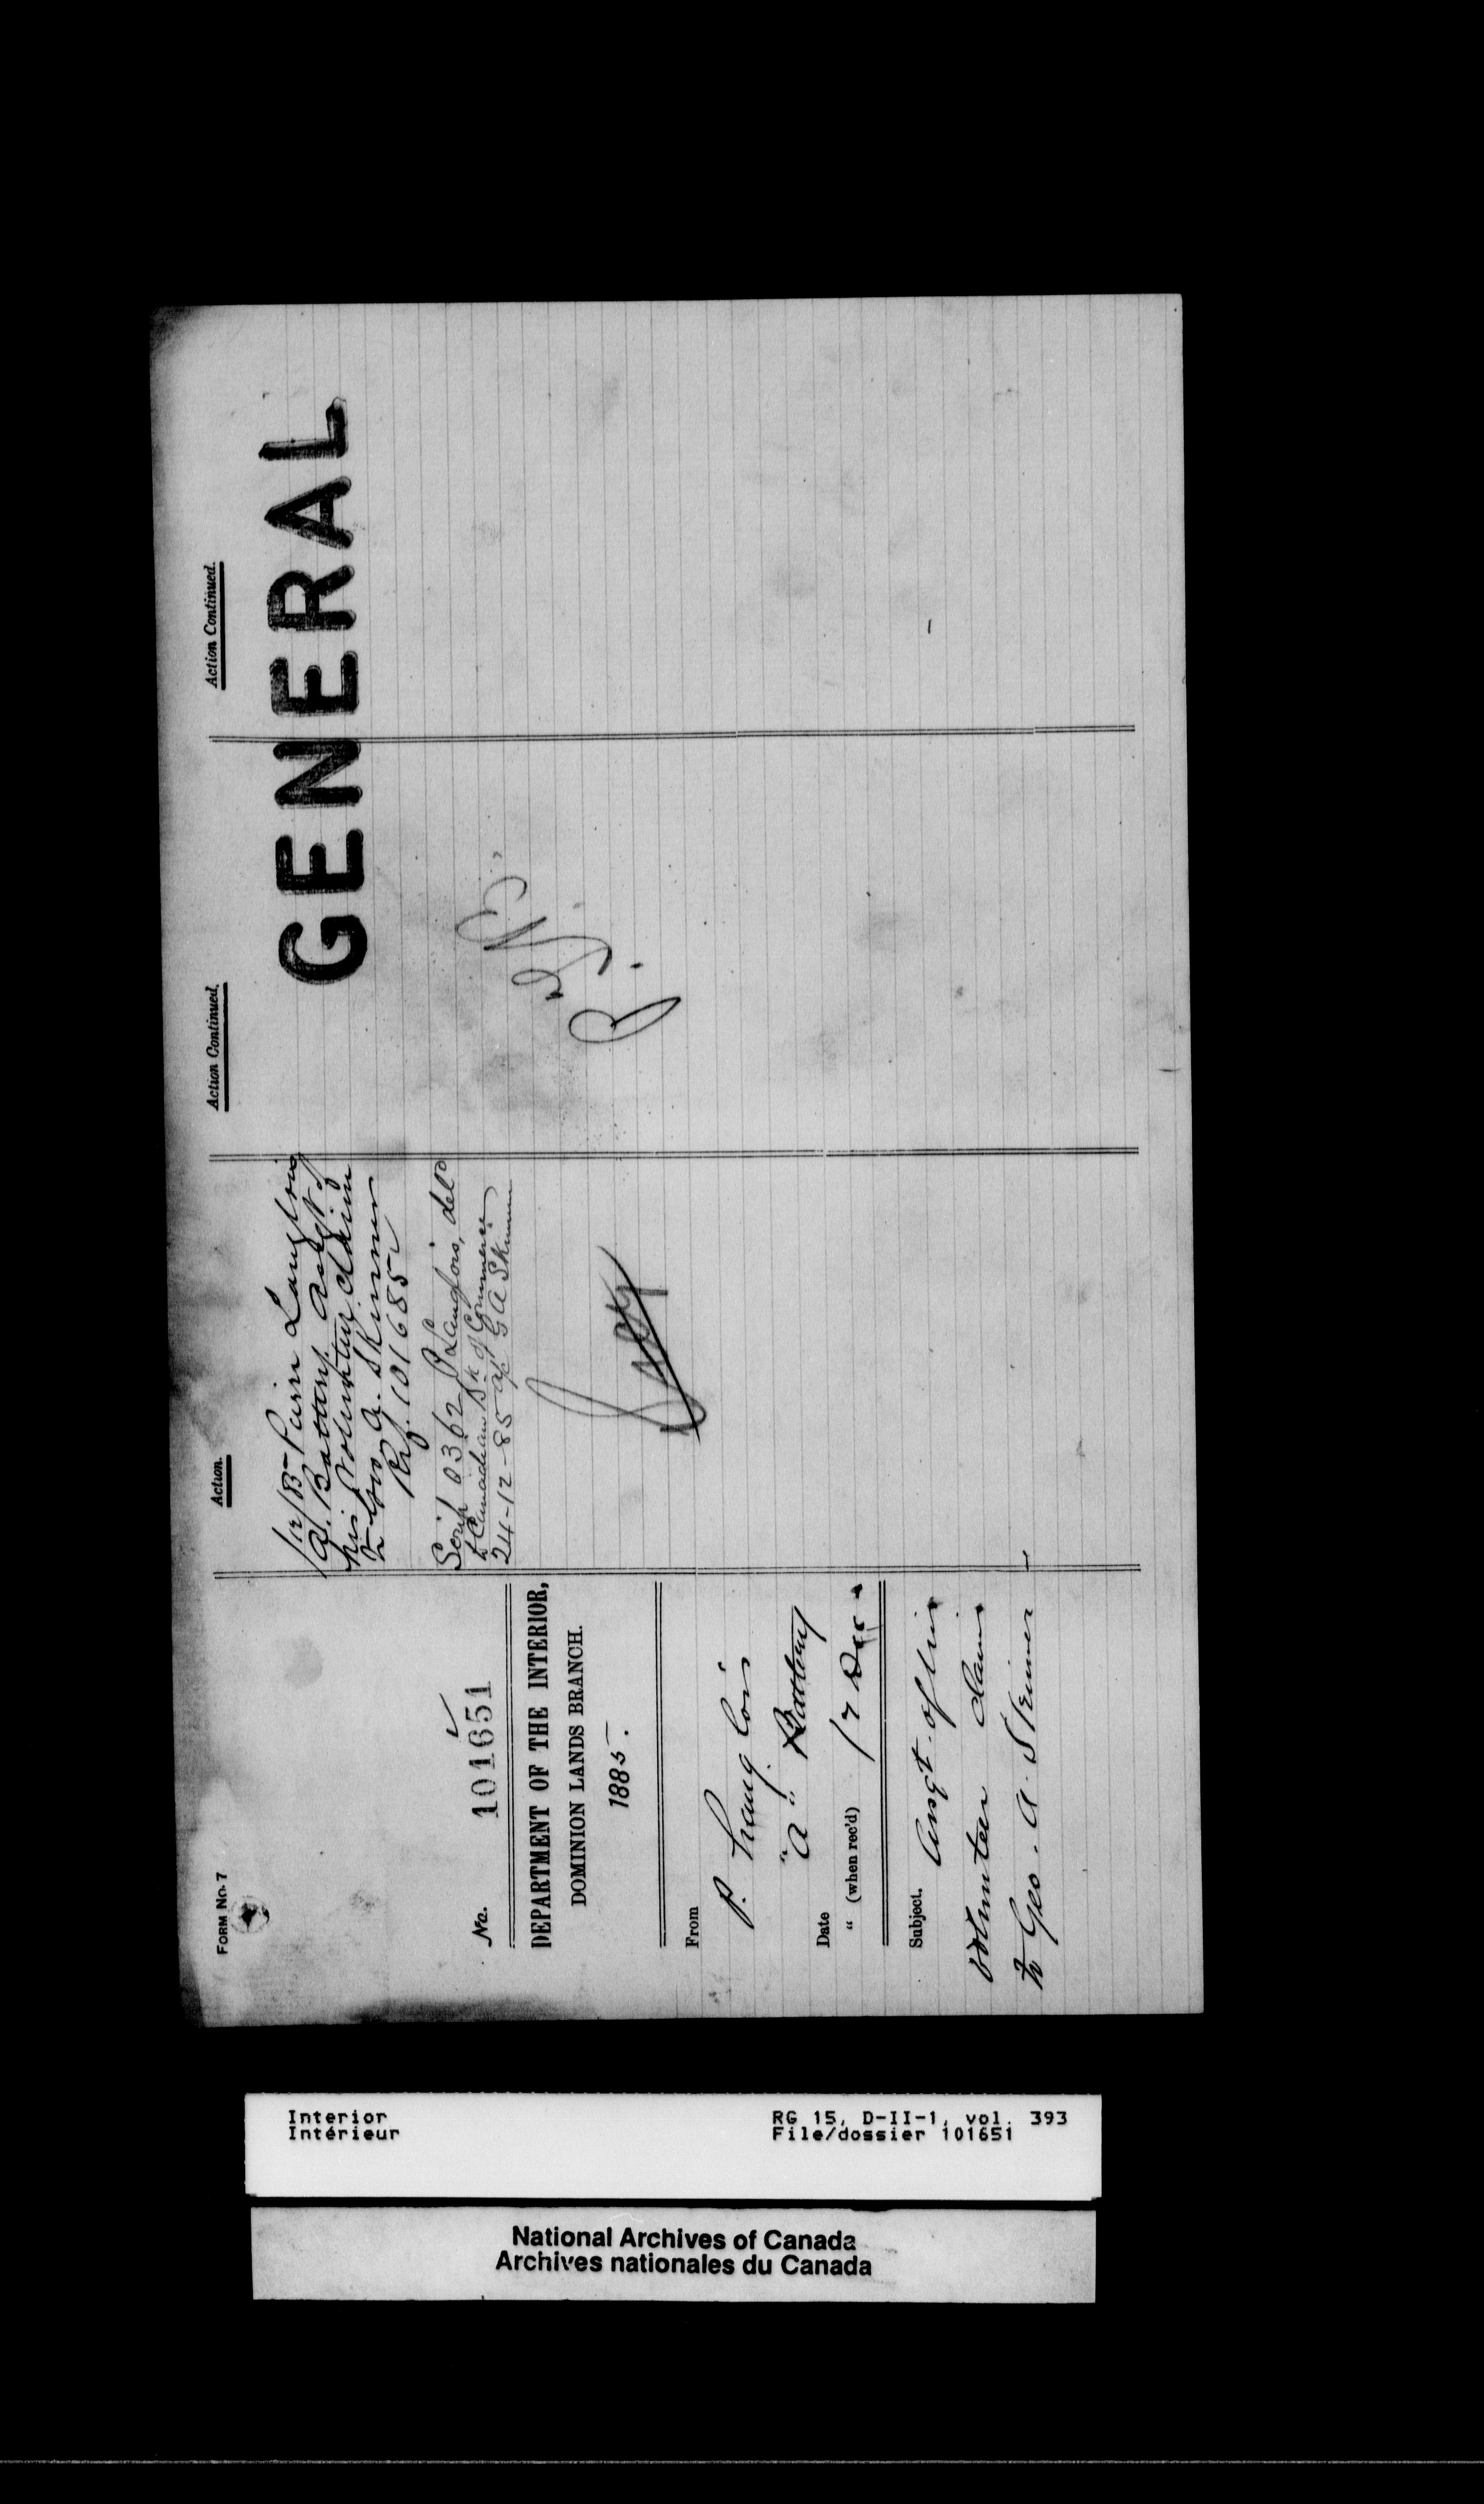 FORM No. 7
No. 101651
DEPARTMENT OF THE INTERIOR,
DOMINION LANDS BRANCH.
1885.
From
P. Langlois
"A" Battery
Date
" (when rec'd) 17 Dec
Subject. Assgt. of his
volunteer claim
to Geo. A. Skinner
Action.
Pierre Langlois
A. Battery. Assgt of
his Volunteer Claim
to Geo A. Skinner
Ref. 101685
Scrip 0362 P Langlois, deld
to Canadian Bk of Commerce
24-12-85 a/c G A Skinner
Action Continued.
GENERAL
Action Continued.
Interior
Intérieur
RG 15, D-II-1, vol. 393
File/dossier 101651
National Archives of Canada
Archives nationales du Canada